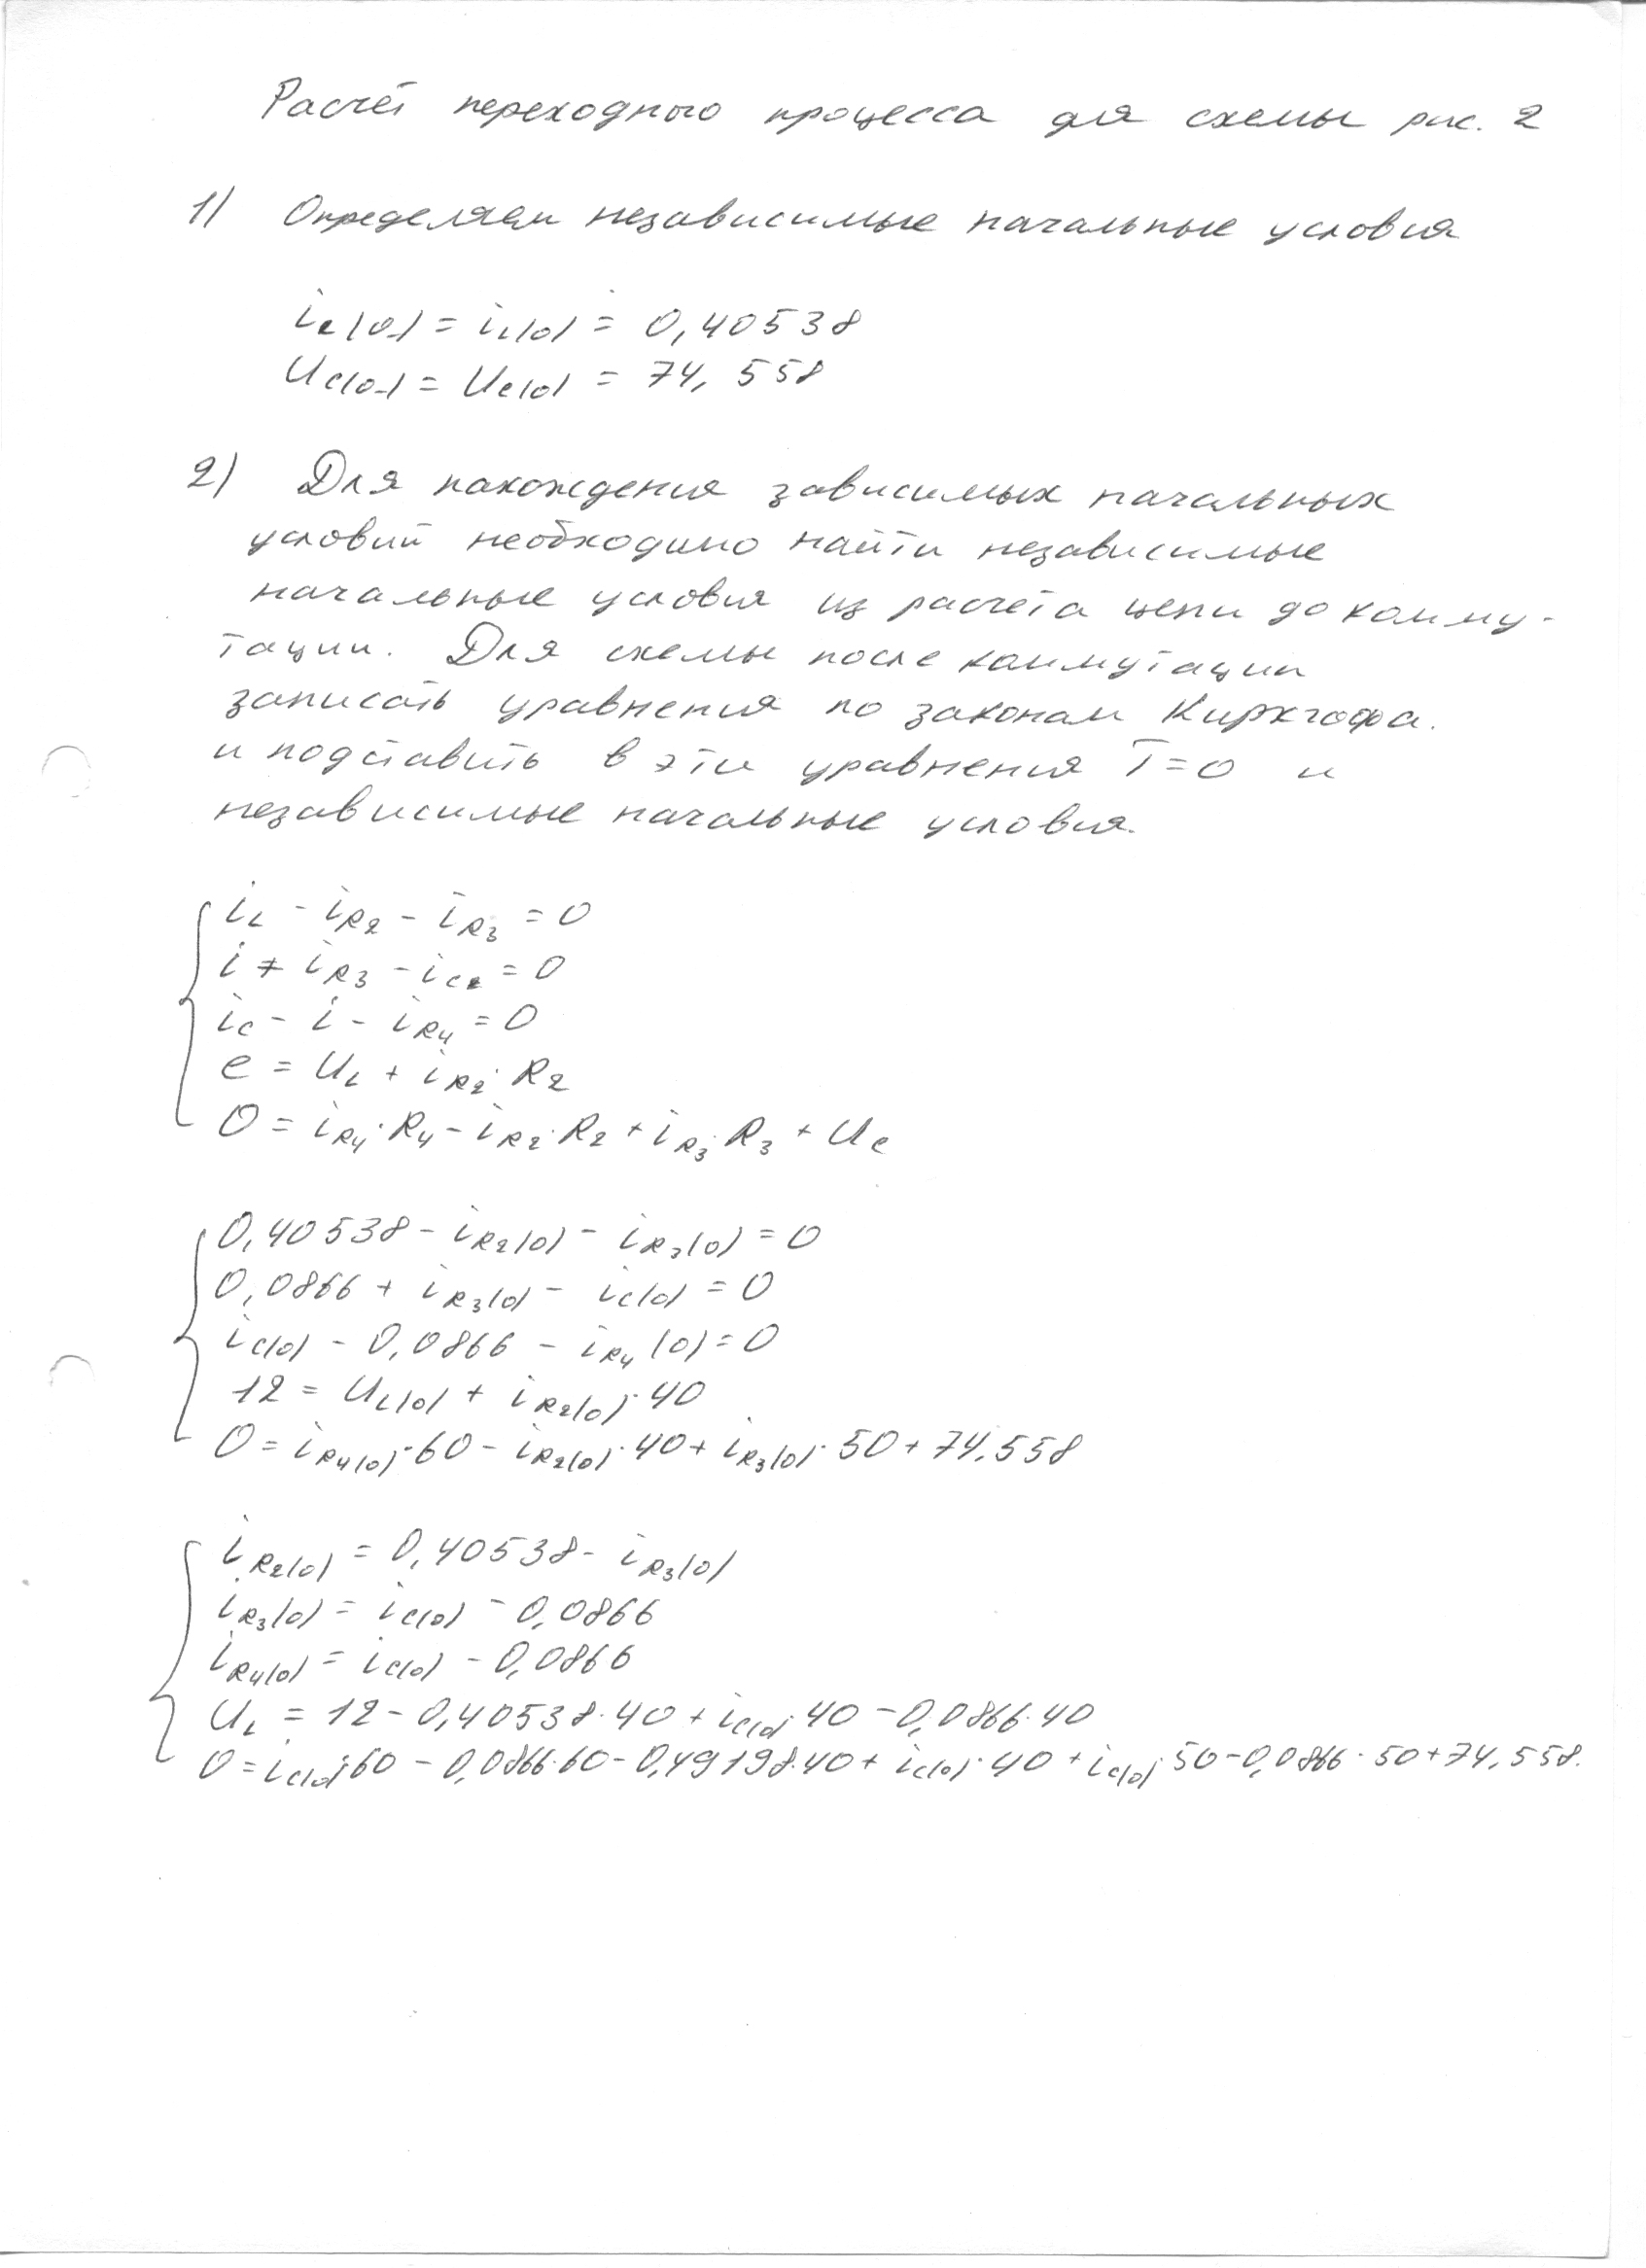 Расчёт переходного процесса для схемы рис. 2
1) Определяем независимые начальные условия
i_L(0-) = i_L(0) = 0,40538
U_C(0-) = U_C(0) = 74,558
2) Для нахождения зависимых начальных
условий необходимо найти независимые
начальные условия из расчёта цепи до комму-
тации. Для схемы после коммутации
записать уравнения по законам Кирхгофа.
и подставить в эти уравнения T=0 и
независимые начальные условия.
i_L - i_R2 - i_R3 = 0
i + i_R3 - i_C = 0
i_C - i - i_R4 = 0
e = U_L + i_R2·R2
0 = i_R4·R4 - i_R2·R2 + i_R3·R3 + U_C
0,40538 - i_R2(0) - i_R3(0) = 0
0,0866 + i_R3(0) - i_C(0) = 0
i_C(0) - 0,0866 - i_R4(0) = 0
12 = U_L(0) + i_R2(0)·40
0 = i_R4(0)·60 - i_R2(0)·40 + i_R3(0)·50 + 74,558
i_R2(0) = 0,40538 - i_R3(0)
i_R3(0) = i_C(0) - 0,0866
i_R4(0) = i_C(0) - 0,0866
U_L = 12 - 0,40538·40 + i_C(0)·40 - 0,0866·40
0 = i_C(0)·60 - 0,0866·60 - 0,49198·40 + i_C(0)·40 + i_C(0)·50 - 0,0866·50 + 74,558.